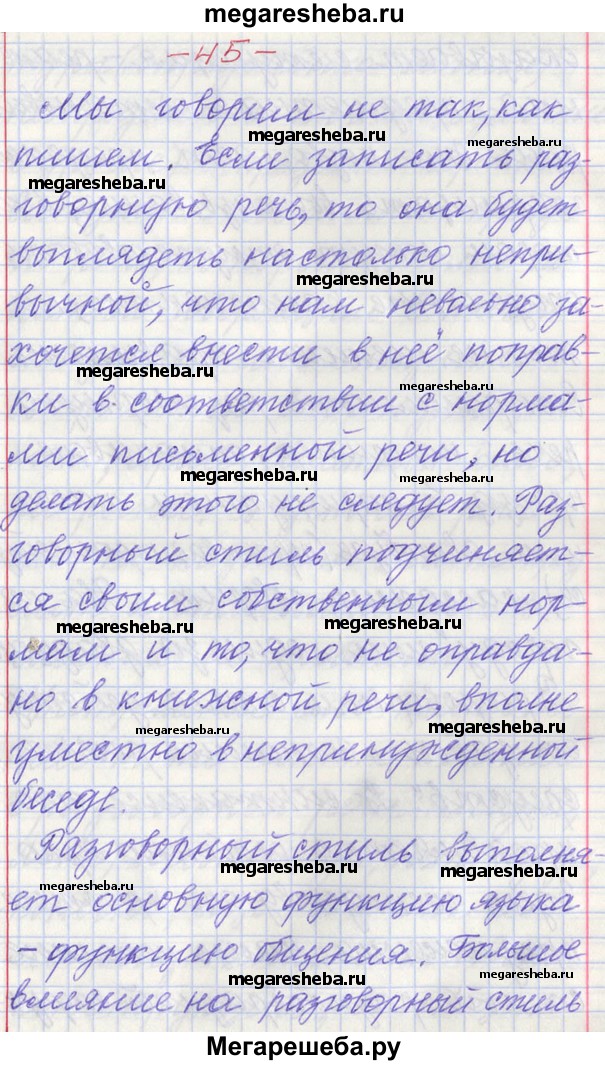 megaresheba.ru
- 45 -
Мы говорим не так, как
megaresheba.ru megaresheba.ru
пишем. Если записать раз-
megaresheba.ru
говорную речь, то она будет
выглядеть настолько непри-
megaresheba.ru
вычной, что нам невольно за-
хочется внести в неё поправ-
megaresheba.ru megaresheba.ru
ки в соответствии с норма-
ми письменной речи, но
megaresheba.ru megaresheba.ru
делать этого не следует. Раз-
говорный стиль подчиняет-
ся своим собственным нор-
megaresheba.ru megaresheba.ru
мам и то, что не оправда-
но в книжной речи, вполне
megaresheba.ru megaresheba.ru
уместно в непринужденной
беседе.
Разговорный стиль выполня-
megaresheba.ru megaresheba.ru
megaresheba.ru
ет основную функцию языка
- функцию общения. Большое
megaresheba.ru megaresheba.ru
влияние на разговорный стиль
Мегарешеба.ру